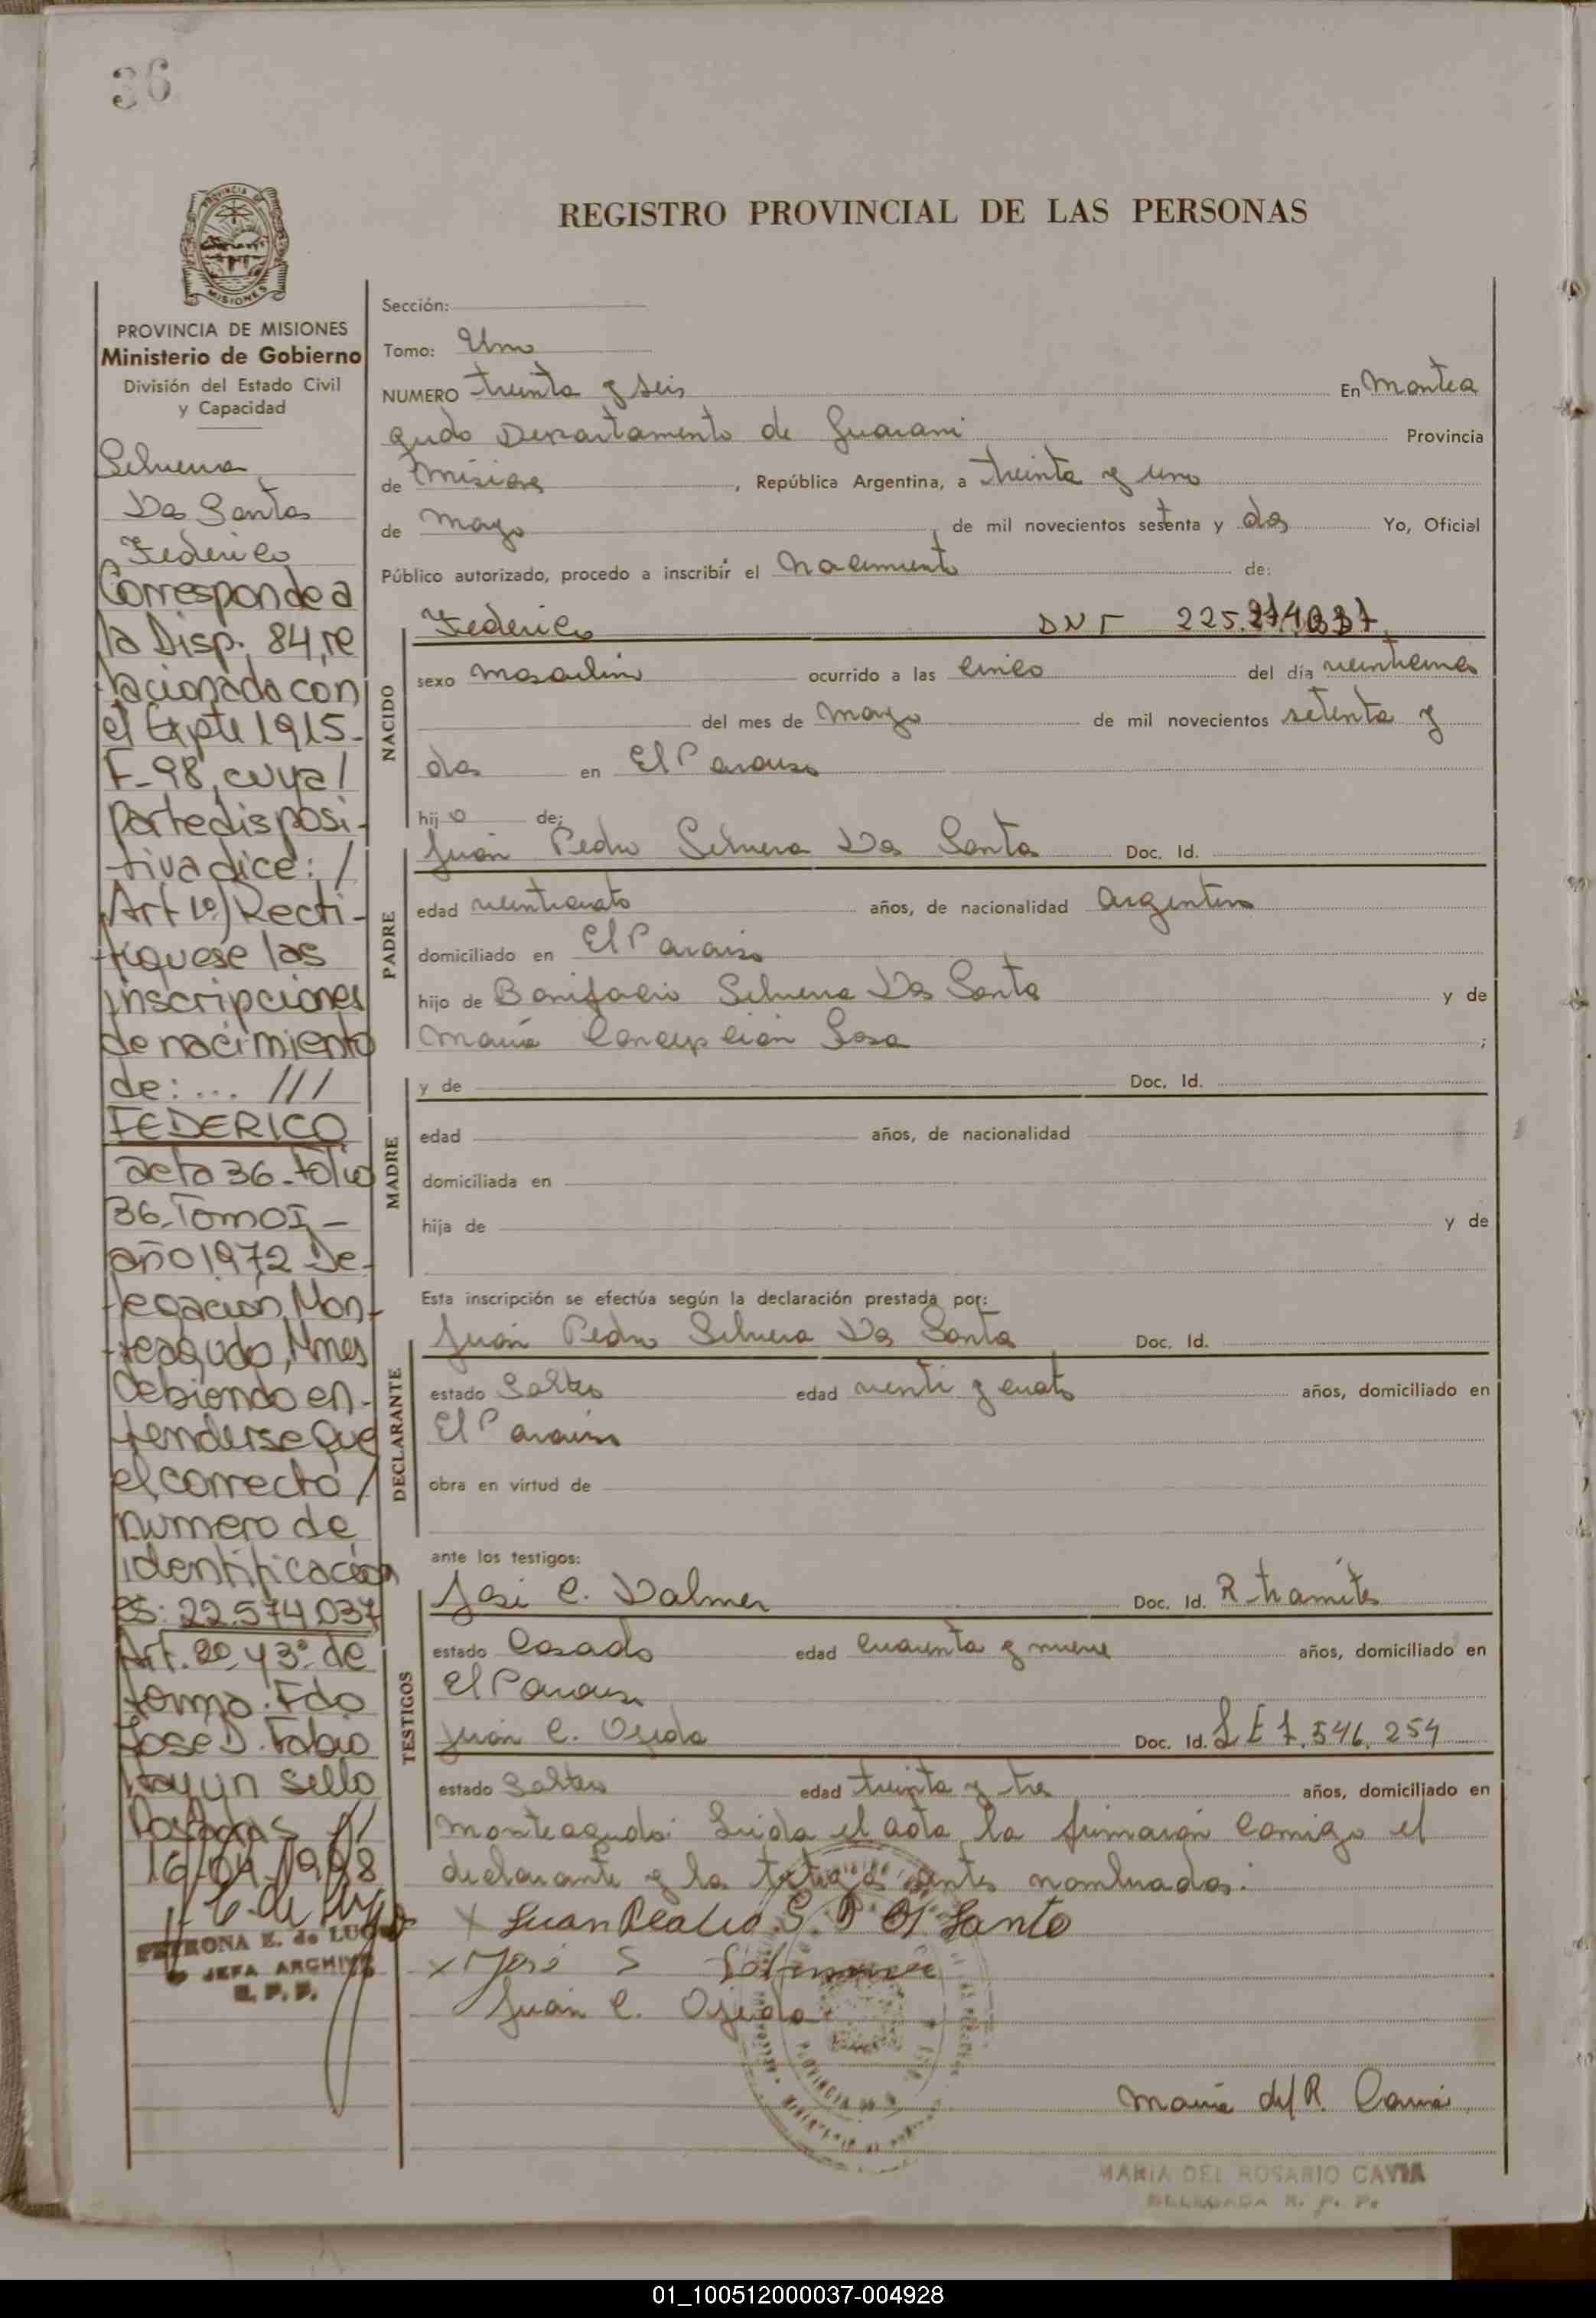 36
REGISTRO PROVINCIAL DE LAS PERSONAS
PROVINCIA DE
MISIONES
PROVINCIA DE MISIONES
Ministerio de Gobierno
División del Estado Civil
y Capacidad
Da Santos
Federico
Corresponde a
la Disp. 84, re
lacionado con
el Expte 1915-
F-98, cuya /
parte disposi-
tiva dice: /
Art 1º) Recti-
fiquese las
inscripciones
de nacimiento
de: ... ///
FEDERICO
acta 36-folio
36-Tomo I-
año 1972 De-
legacion Mon-
teagudo, Mnes
debiendo en-
tenderse que
el correcto /
numero de
identificación
es: 22.574.037
Art. 2º y 3º de
forma. Fdo
Jose D. Fabio
Hay un sello
Posadas //
16/04/1998
PETRONA E. de LUGO
JEFA ARCHIVO
R. P. P.
Sección:
Tomo: Uno
NUMERO treinta y seis En Montea
gudo Departamento de Guarani Provincia
de Misiones, República Argentina, a treinta y uno
de mayo de mil novecientos setenta y dos Yo, Oficial
Público autorizado, procedo a inscribir el nacimiento de:
NACIDO
Federico DNI
sexo masculino ocurrido a las cinco del día
del mes de Mayo de mil novecientos setenta y
dos en El Paraiso
hijo de:
PADRE
Juan Pedro Da Santos Doc. Id.
edad veinticuatro años, de nacionalidad Argentino
domiciliado en El Paraiso
hijo de Bonifacio Da Santos y de
María Concepción Sosa ;
MADRE
y de Doc. Id.
edad años, de nacionalidad
domiciliada en
hija de y de
Esta inscripción se efectúa según la declaración prestada por:
DECLARANTE
Juan Pedro Da Santos Doc. Id.
estado Soltero edad venti y cuatro años, domiciliado en
El Paraiso
obra en virtud de
ante los testigos:
TESTIGOS
José C. Dalmer Doc. Id. R-tramites
estado Casado edad cuarenta y nueve años, domiciliado en
El Paraiso
Juan C. Ojeda Doc. Id. L E 7.546.254
estado Soltero edad treinta y tres años, domiciliado en
Monteagudo: Leida el acta la firmaron conmigo el
declarante y los testigos antes nombrados.
José
Juan C. Ojeda
María del R. Cavia
MARIA DEL ROSARIO CAVIA
DELEGADA R. P. P.
01_100512000037-004928